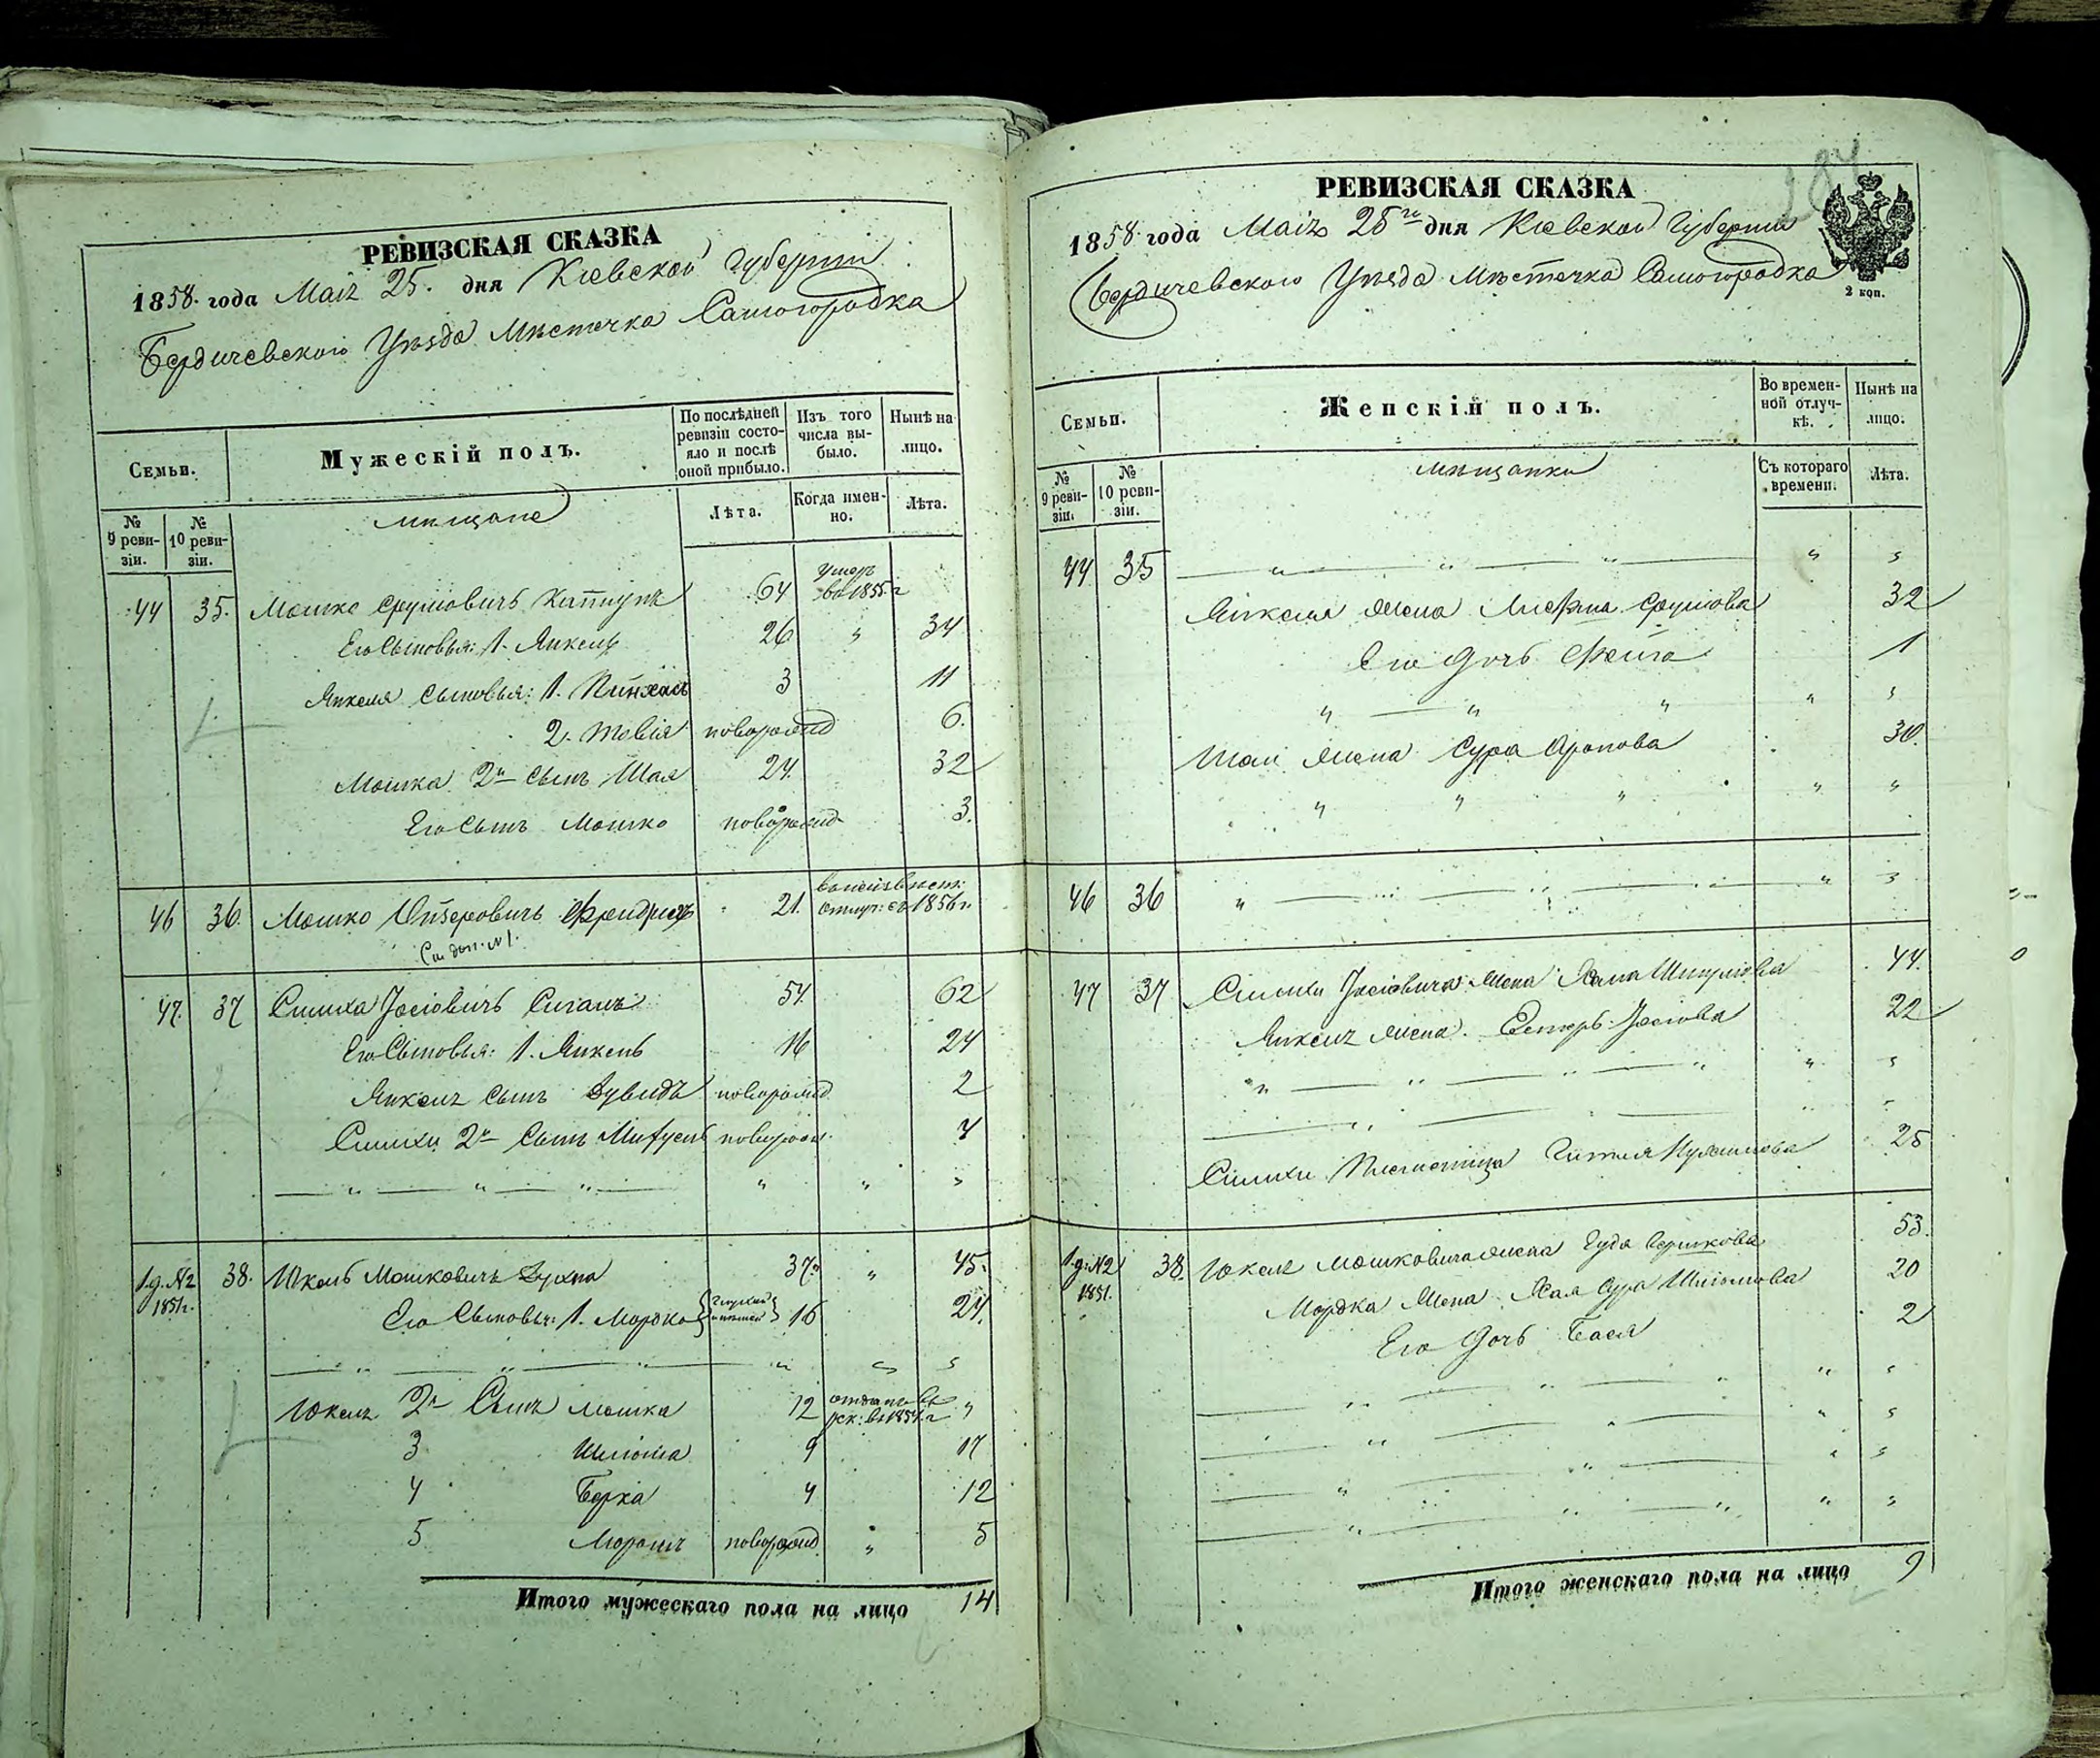 РЕВИЗСКАЯ СКАЗКА
1858. года Маія 25. дня Кіевской Губерніи
Бердичевского Уѣзда Мѣстечка Самогородка
Семьи.
Мужескій полъ.
По послѣдней ревизіи состояло и послѣ оной прибыло.
Изъ того числа выбыло.
Нынѣ на лицо.
№ 9 ревизіи.
№ 10 ревизіи.
мѣщане
Лѣта.
Когда именно.
Лѣта.
44 35. Мошко Сруліовичъ 64 Умеръ въ 1855 г
Его Сыновья: 1. Янкель 26 " 34
Янкеля Сыновья: 1. Пинхасъ 3 11
2. Товія новорожд 6.
Мошка 2й Сынъ Шая 24. 32
Его Сынъ Мошко новорожд 3.
46 36. Мошко 21. 1856 г.
См. доп. №1.
47. 37 Симха Іосіовичъ 54. 62
Его Сыновья: 1. Янкель 16 24
Янкеля Сынъ Дувидъ новорожд 2
Симхи 2й Сынъ новорож. 7
" " " " " "
1.д. №2 1851г. 38. Юкель Мошковичъ 37. " 45.
Его Сыновья: 1. Мордко 16 24.
" " " " " "
Юкеля 2й Сынъ Мошка 12 отданъ въ рек: въ 1854 г "
3 Шлiома 9 17
4 Берка 4 12
5 новорожд " 5
Итого мужескаго пола на лицо 14
РЕВИЗСКАЯ СКАЗКА
1858. года Маія 25го дня Кіевской Губерніи
Бердичевского Уѣзда Мѣстечка Самогородка
2 коп.
Семьи.
Женскій полъ.
Во временной отлучкѣ.
Нынѣ на лицо.
№ 9 ревизіи.
№ 10 ревизіи.
мѣщанки
Съ котораго времени.
Лѣта.
44 35 " " " " "
Янкеля Жена Сруліова 32
Его Дочь Фейга 1
" " " " "
Шаи Жена Сура Аронова 30.
" " " " "
46 36 " " " " "
47 37 Симхи Іосіовича Жена 44.
Янкеля Жена Естеръ Іосіова 22
" " " " "
" " " "
Симхи Племеница 25
1.д. №2 1851. 38. Юкеля Мошковича Жена Берикова 53.
Мордка Жена Хая Сура Шліомова 20
Его Дочь Бася 2
" " " " "
" " " "
" " " "
" " " "
Итого женскаго пола на лицо 9